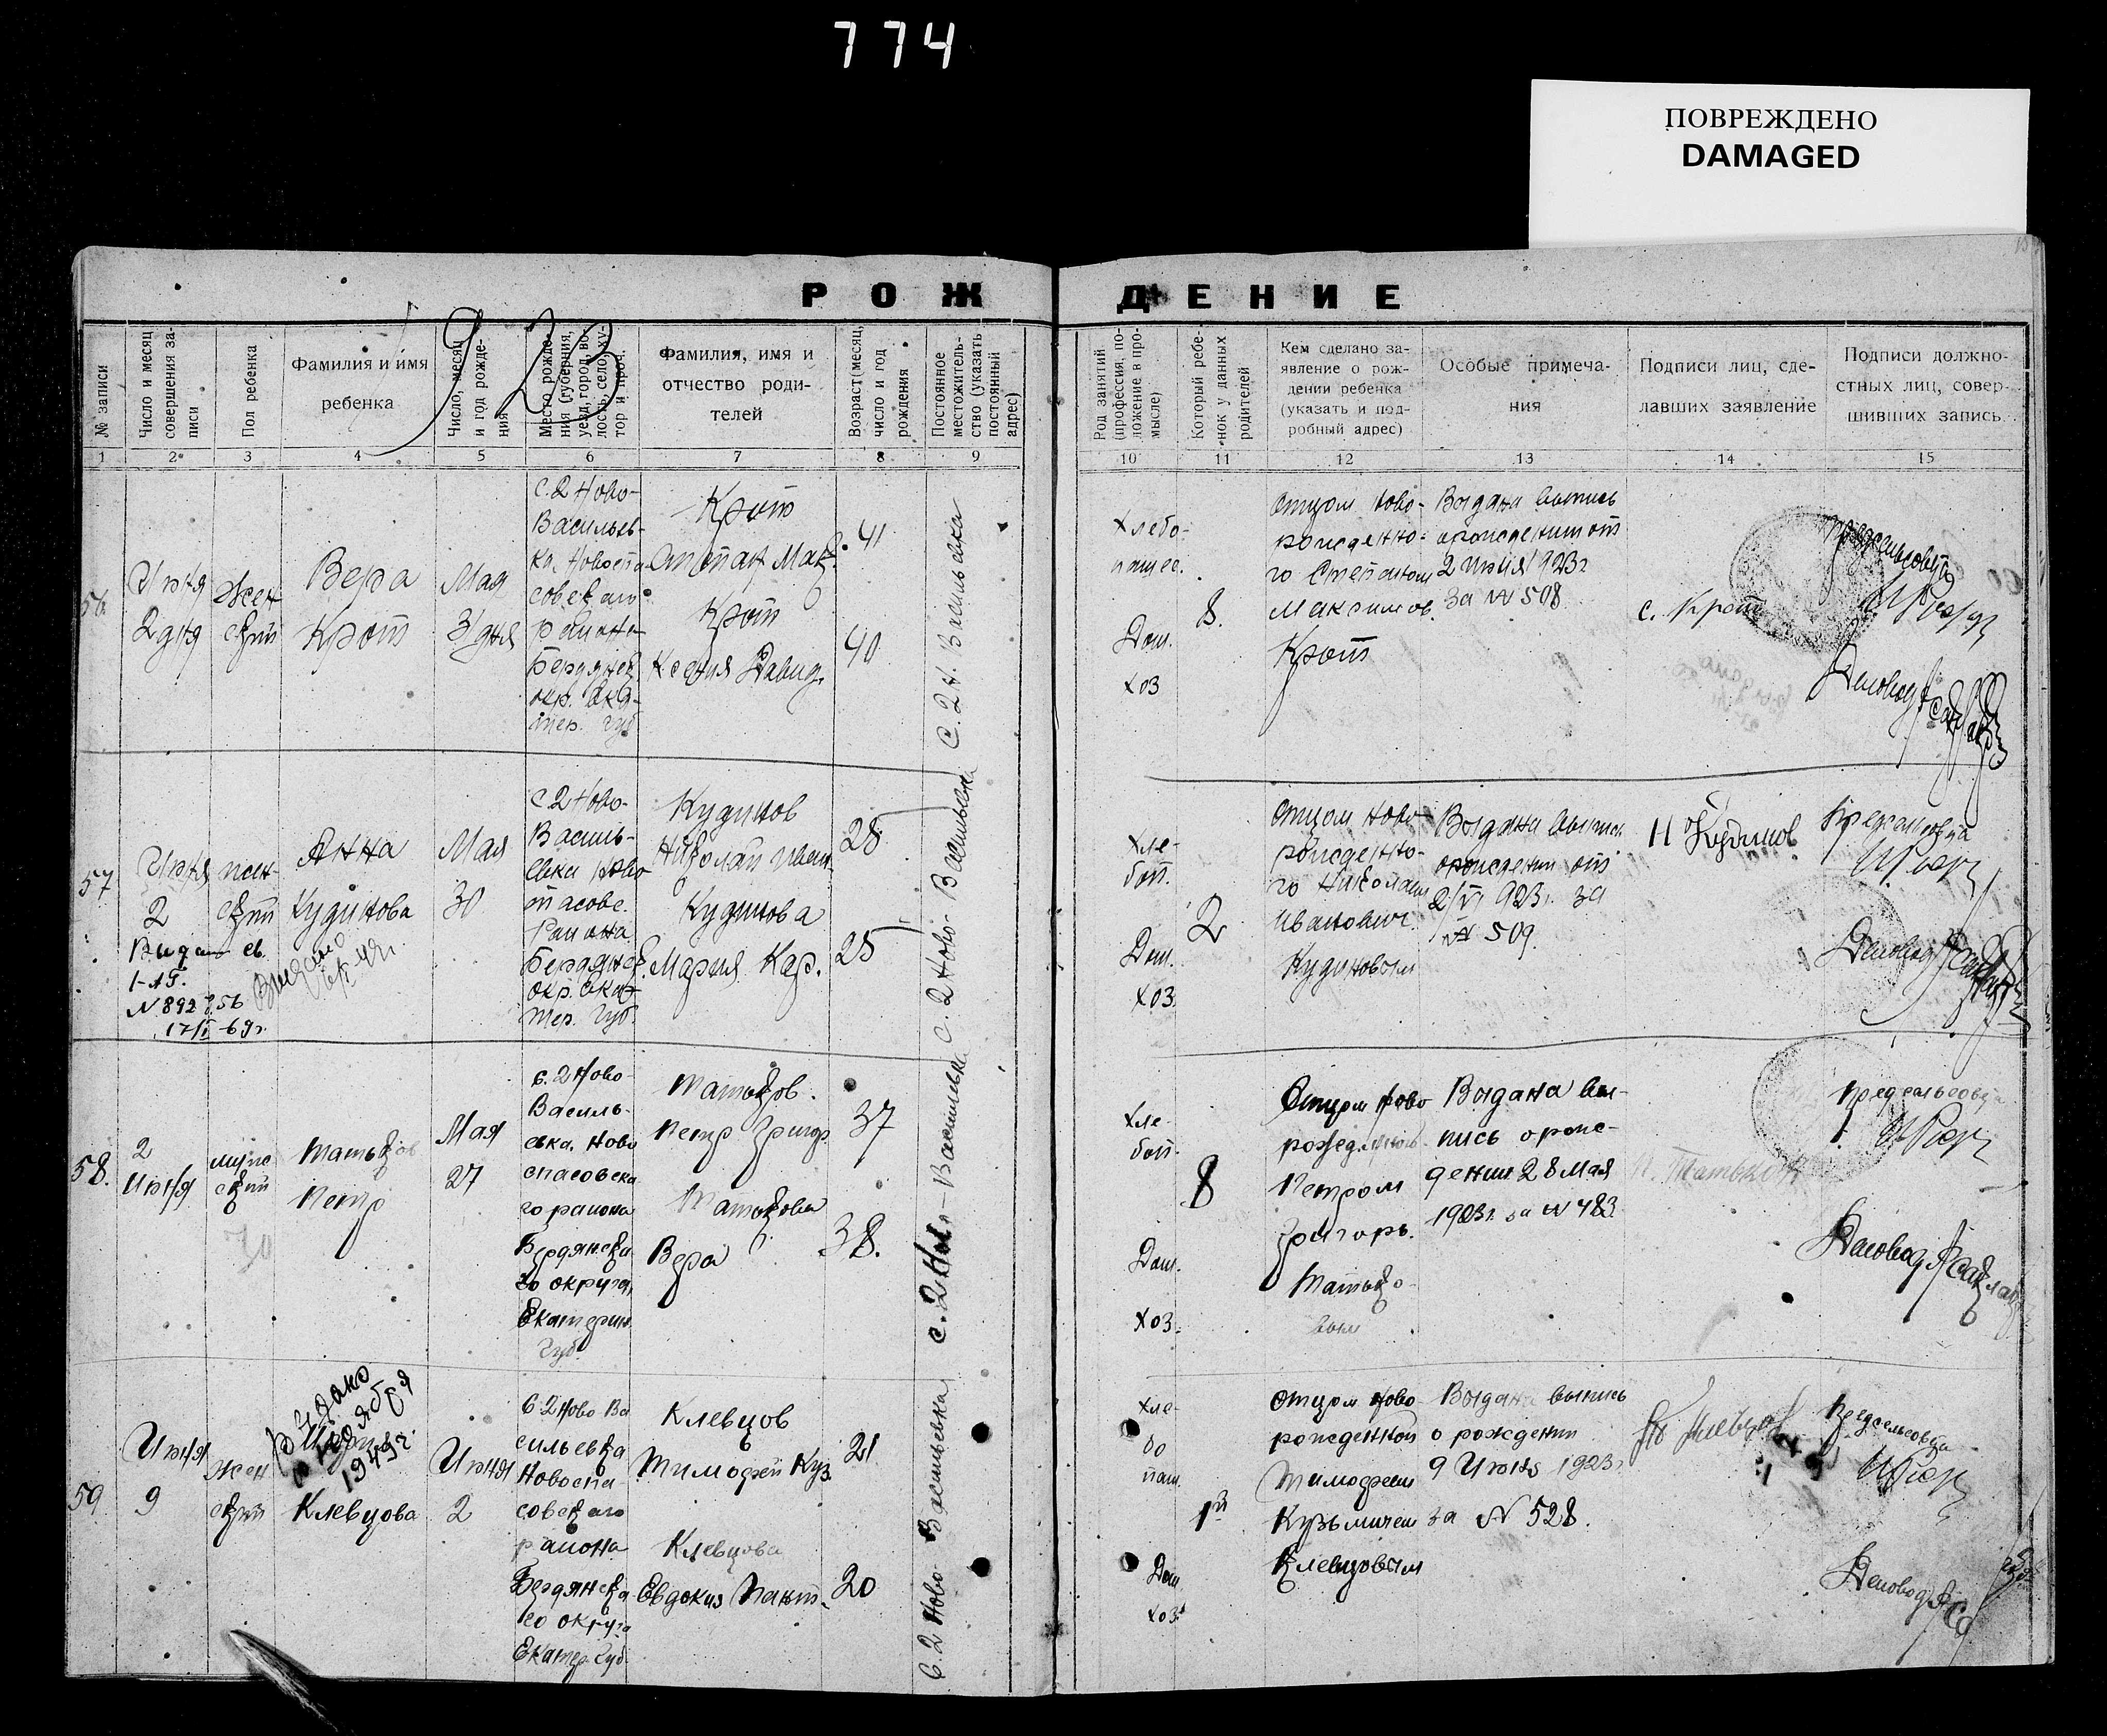 774
ПОВРЕЖДЕНО
DAMAGED
РОЖДЕНИЕ
1923
№ записи
Число и месяц совершения за-
писи
Пол ребенка
Фамилия и имя
ребенка
Число, месяц
и год рожде-
ния
Место рожде-
ния (губерния,
уезд, город, во-
лость, село, ху-
тор и проч.
Фамилия, имя и
отчество роди-
телей
Возраст (месяц,
число и год
рождения
Постоянное
местожитель-
ство (указать
постоянный
адрес)
Род занятий
(профессия, по-
ложение в про-
мысле)
Который ребе-
нок у данных
родителей
Кем сделано за-
явление о рож-
дении ребенка
(указать и под-
робный адрес)
Особые примеча-
ния
Подписи лиц, сде-
лавших заявление
Подписи должно-
стных лиц, совер-
шивших запись.
1 2 3 4 5 6 7 8 9 10 11 12 13 14 15
56
Июня
2 дня
Жен
ский
Вера
Крот
Мая
31 дня
с. 2 Ново-
Васильев-
ка Новоспа-
совского
района
Бердянск
окр. Ека-
тер. губ
Крот
Степан Мак.
Крот
Ксения Давид.
41
40
С. 2 Н. Васильевка
Хлебо-
пашес.
Дом.
хоз
8.
Отцом ново-
рожденно-
го Степаном
Максимов.
Крот
Выдана выпись
о рождении от
2 июня 1923 г
за № 508
с. Крот
Предсельсовета
Деловод
57
Июня
2
жен-
ский
Выдано св.
I-АП.
№ 892756
17/I-69г.
Анна
Кудинова
Выдано
Мая
30
с 2 Ново-
Василь-
евки Ново
пасовс.
района
Бердянск.
окр. Ека-
тер. губ.
Кудинов
Николай Иван.
Кудинова
Мария Кар.
28
25
с. 2 Ново-Васильевка
Хле-
боп.
Дом.
хоз
2
Отцом ново-
рожденно-
го Николаем
Иванович.
Кудиновым
Выдана выпись
о рождении от
2/VI 923г. за
№ 509.
Н Кудинов
Предсельсовета
Деловод
58.
2
Июня
муж
ский
Татьков
Петр
Мая
27
с. 2 Ново-
Василь-
евка. Ново
спасовска
го района
Бердянска
го округа,
Екатерин.
губ.
Татьков.
Петр Григор
Татькова
Вера
37
38.
с. 2 Ново-Васильевка
Хле-
боп.
Дом.
хоз.
8
Отцом ново
рожденного
Петром
Григорь.
Татько-
вым
Выдана вы-
пись о рож-
дении 28 Мая
1923г. за № 483
П. Татьков
Предсельсовета
Деловод
59
Июня
9
Жен
ский
Выдано
ноября
1949г.
Клевцова
Июня
2
с. 2 Ново Ва
сильевка
Новоспа
совского
района
Бердянска
го округа
Екатер. губ.
Клевцов
Тимофей Куз.
Клевцова
Евдокия Пант.
21
20
с. 2 Ново-Васильевка
Хле-
бо
паш.
Дом
хоз.
1й
Отцом ново
рожденной
Тимофеем
Кузьмичем
Клевцовым
Выдана выпись
о рождении
9 Июня 1923г
за № 528.
Клевцов
Предсельсовета
Деловод